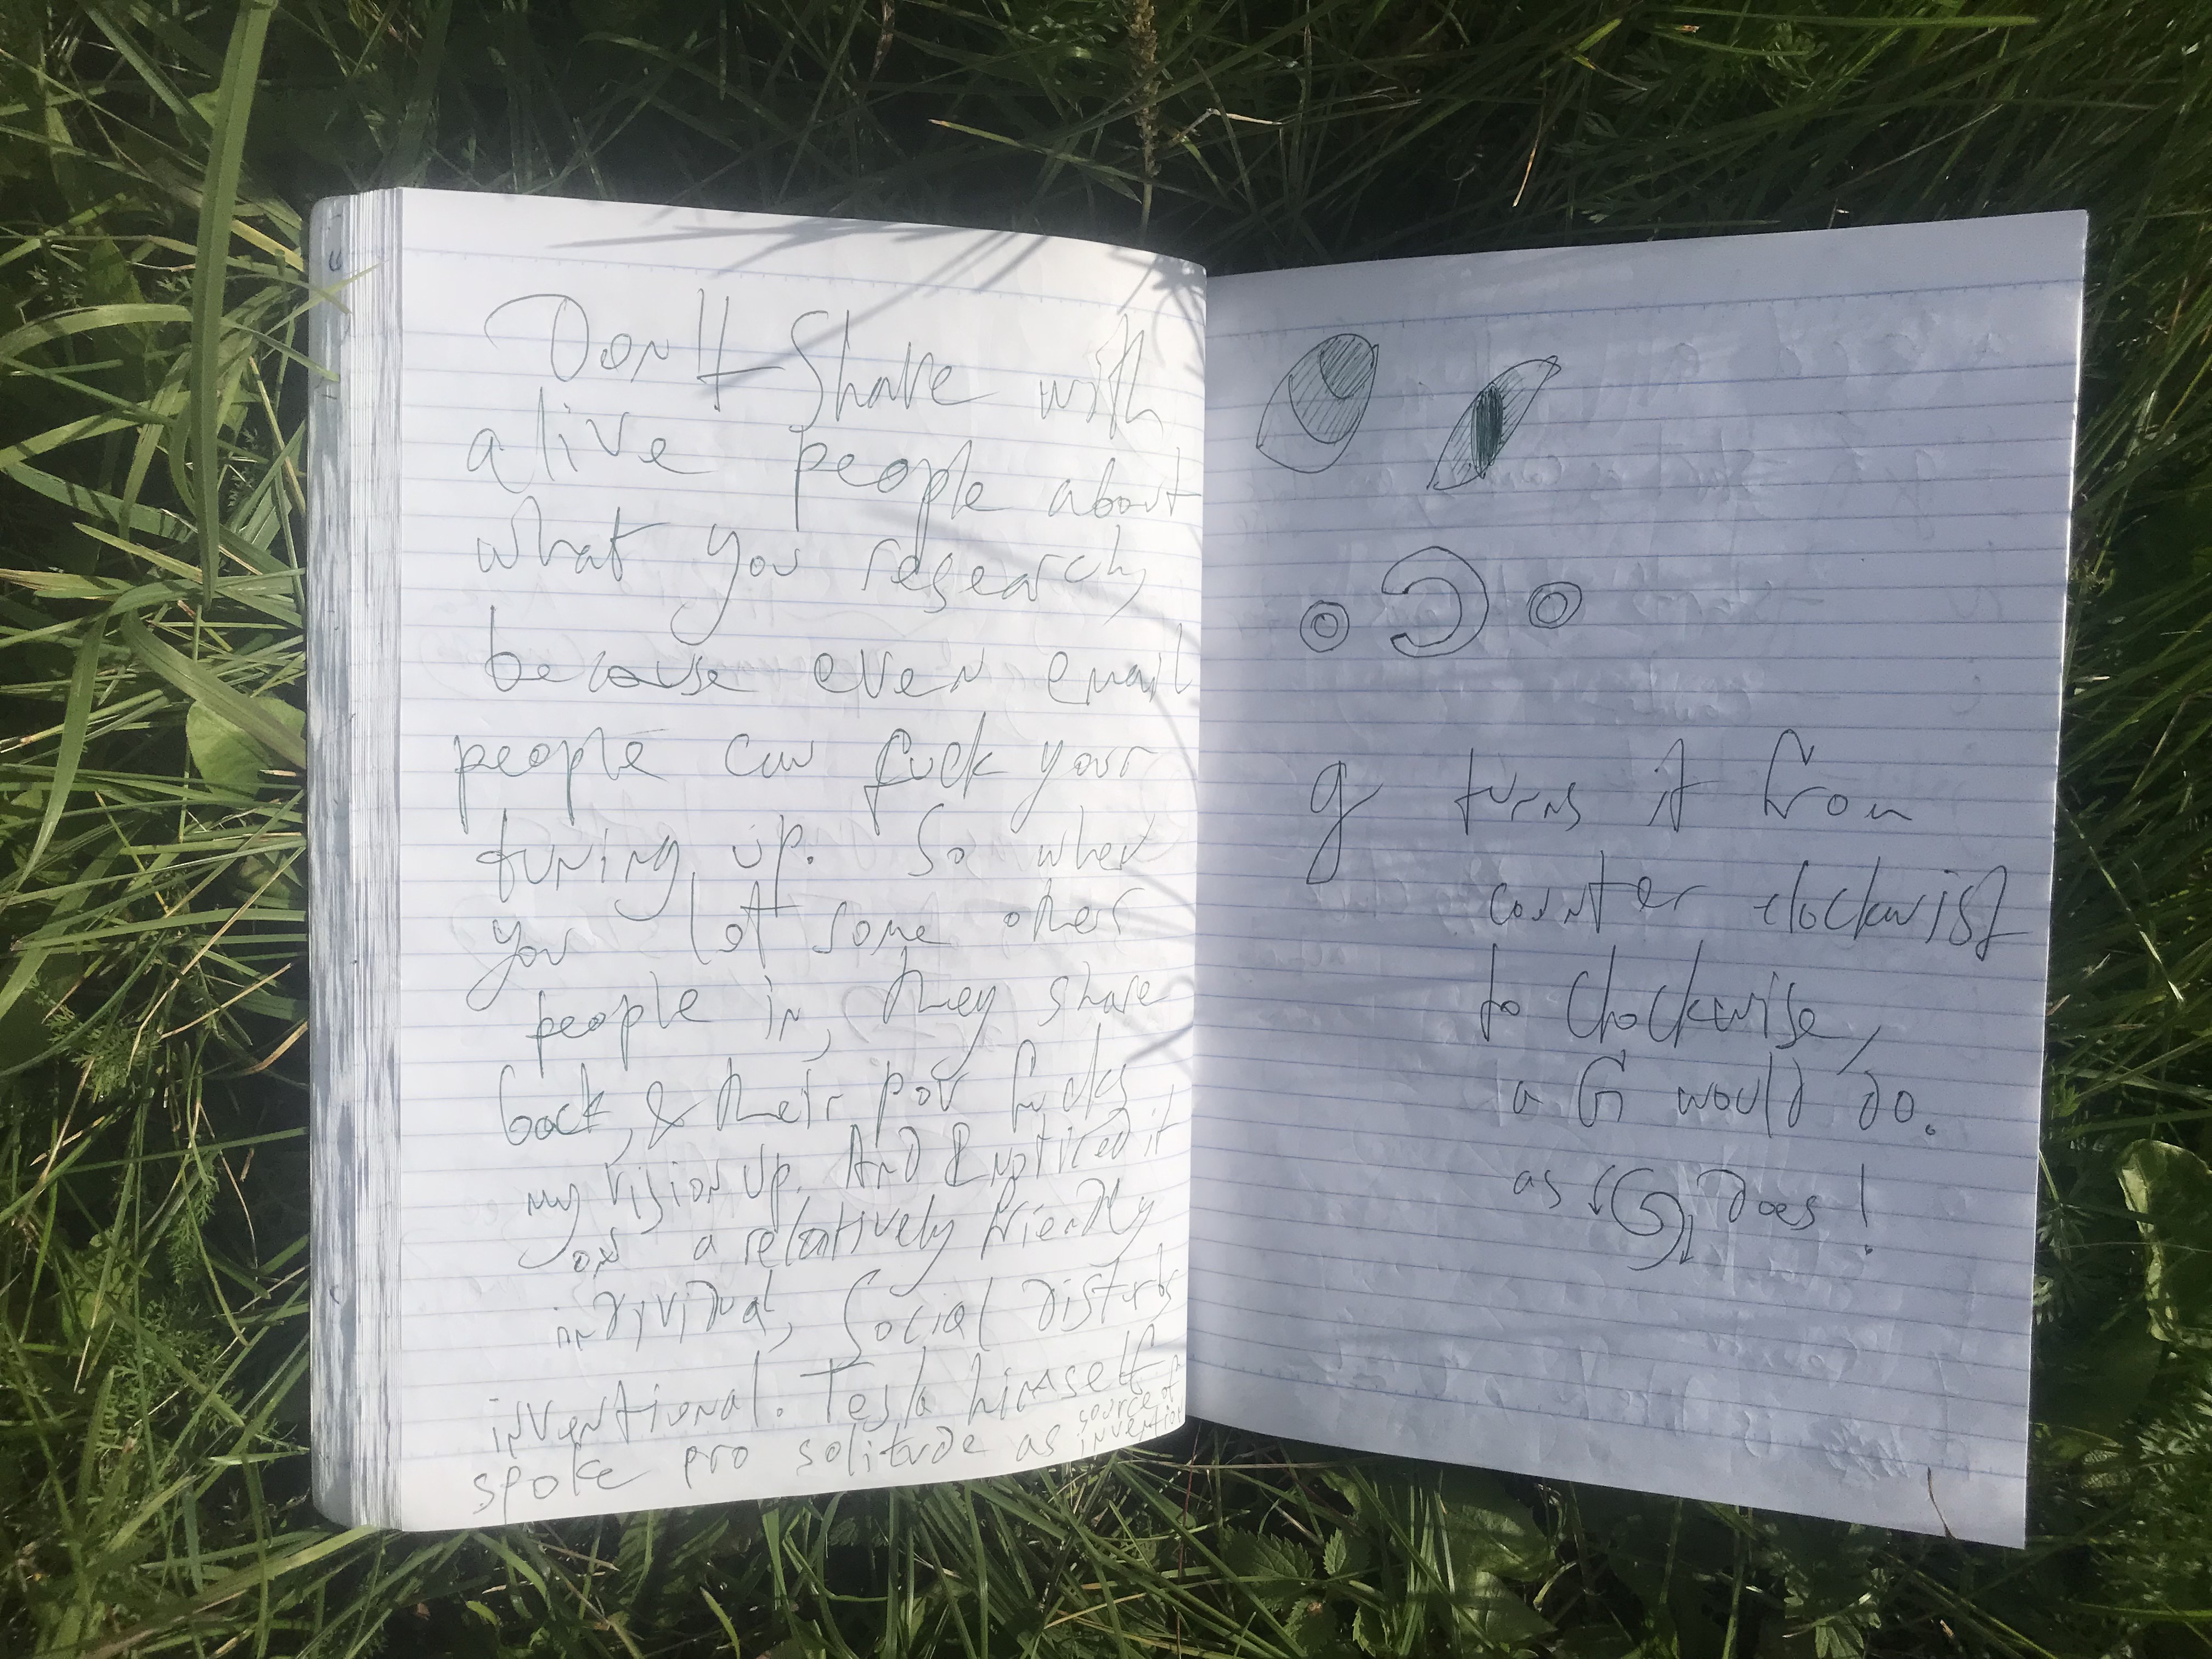 Don't Share with
alive people about
what you research
because even 1 email
people can fuck your
tuning up. So when
you let some other
people in, they share
back, & their pov fucks
my vision up. And I noticed it
Yos a relatively friendly
individual, Social disturbs
inventional. Tesla himself
spoke pro solitude as invention
g turns it from
conter-clockwise
to Clockwise,
a G would do.
as G does!